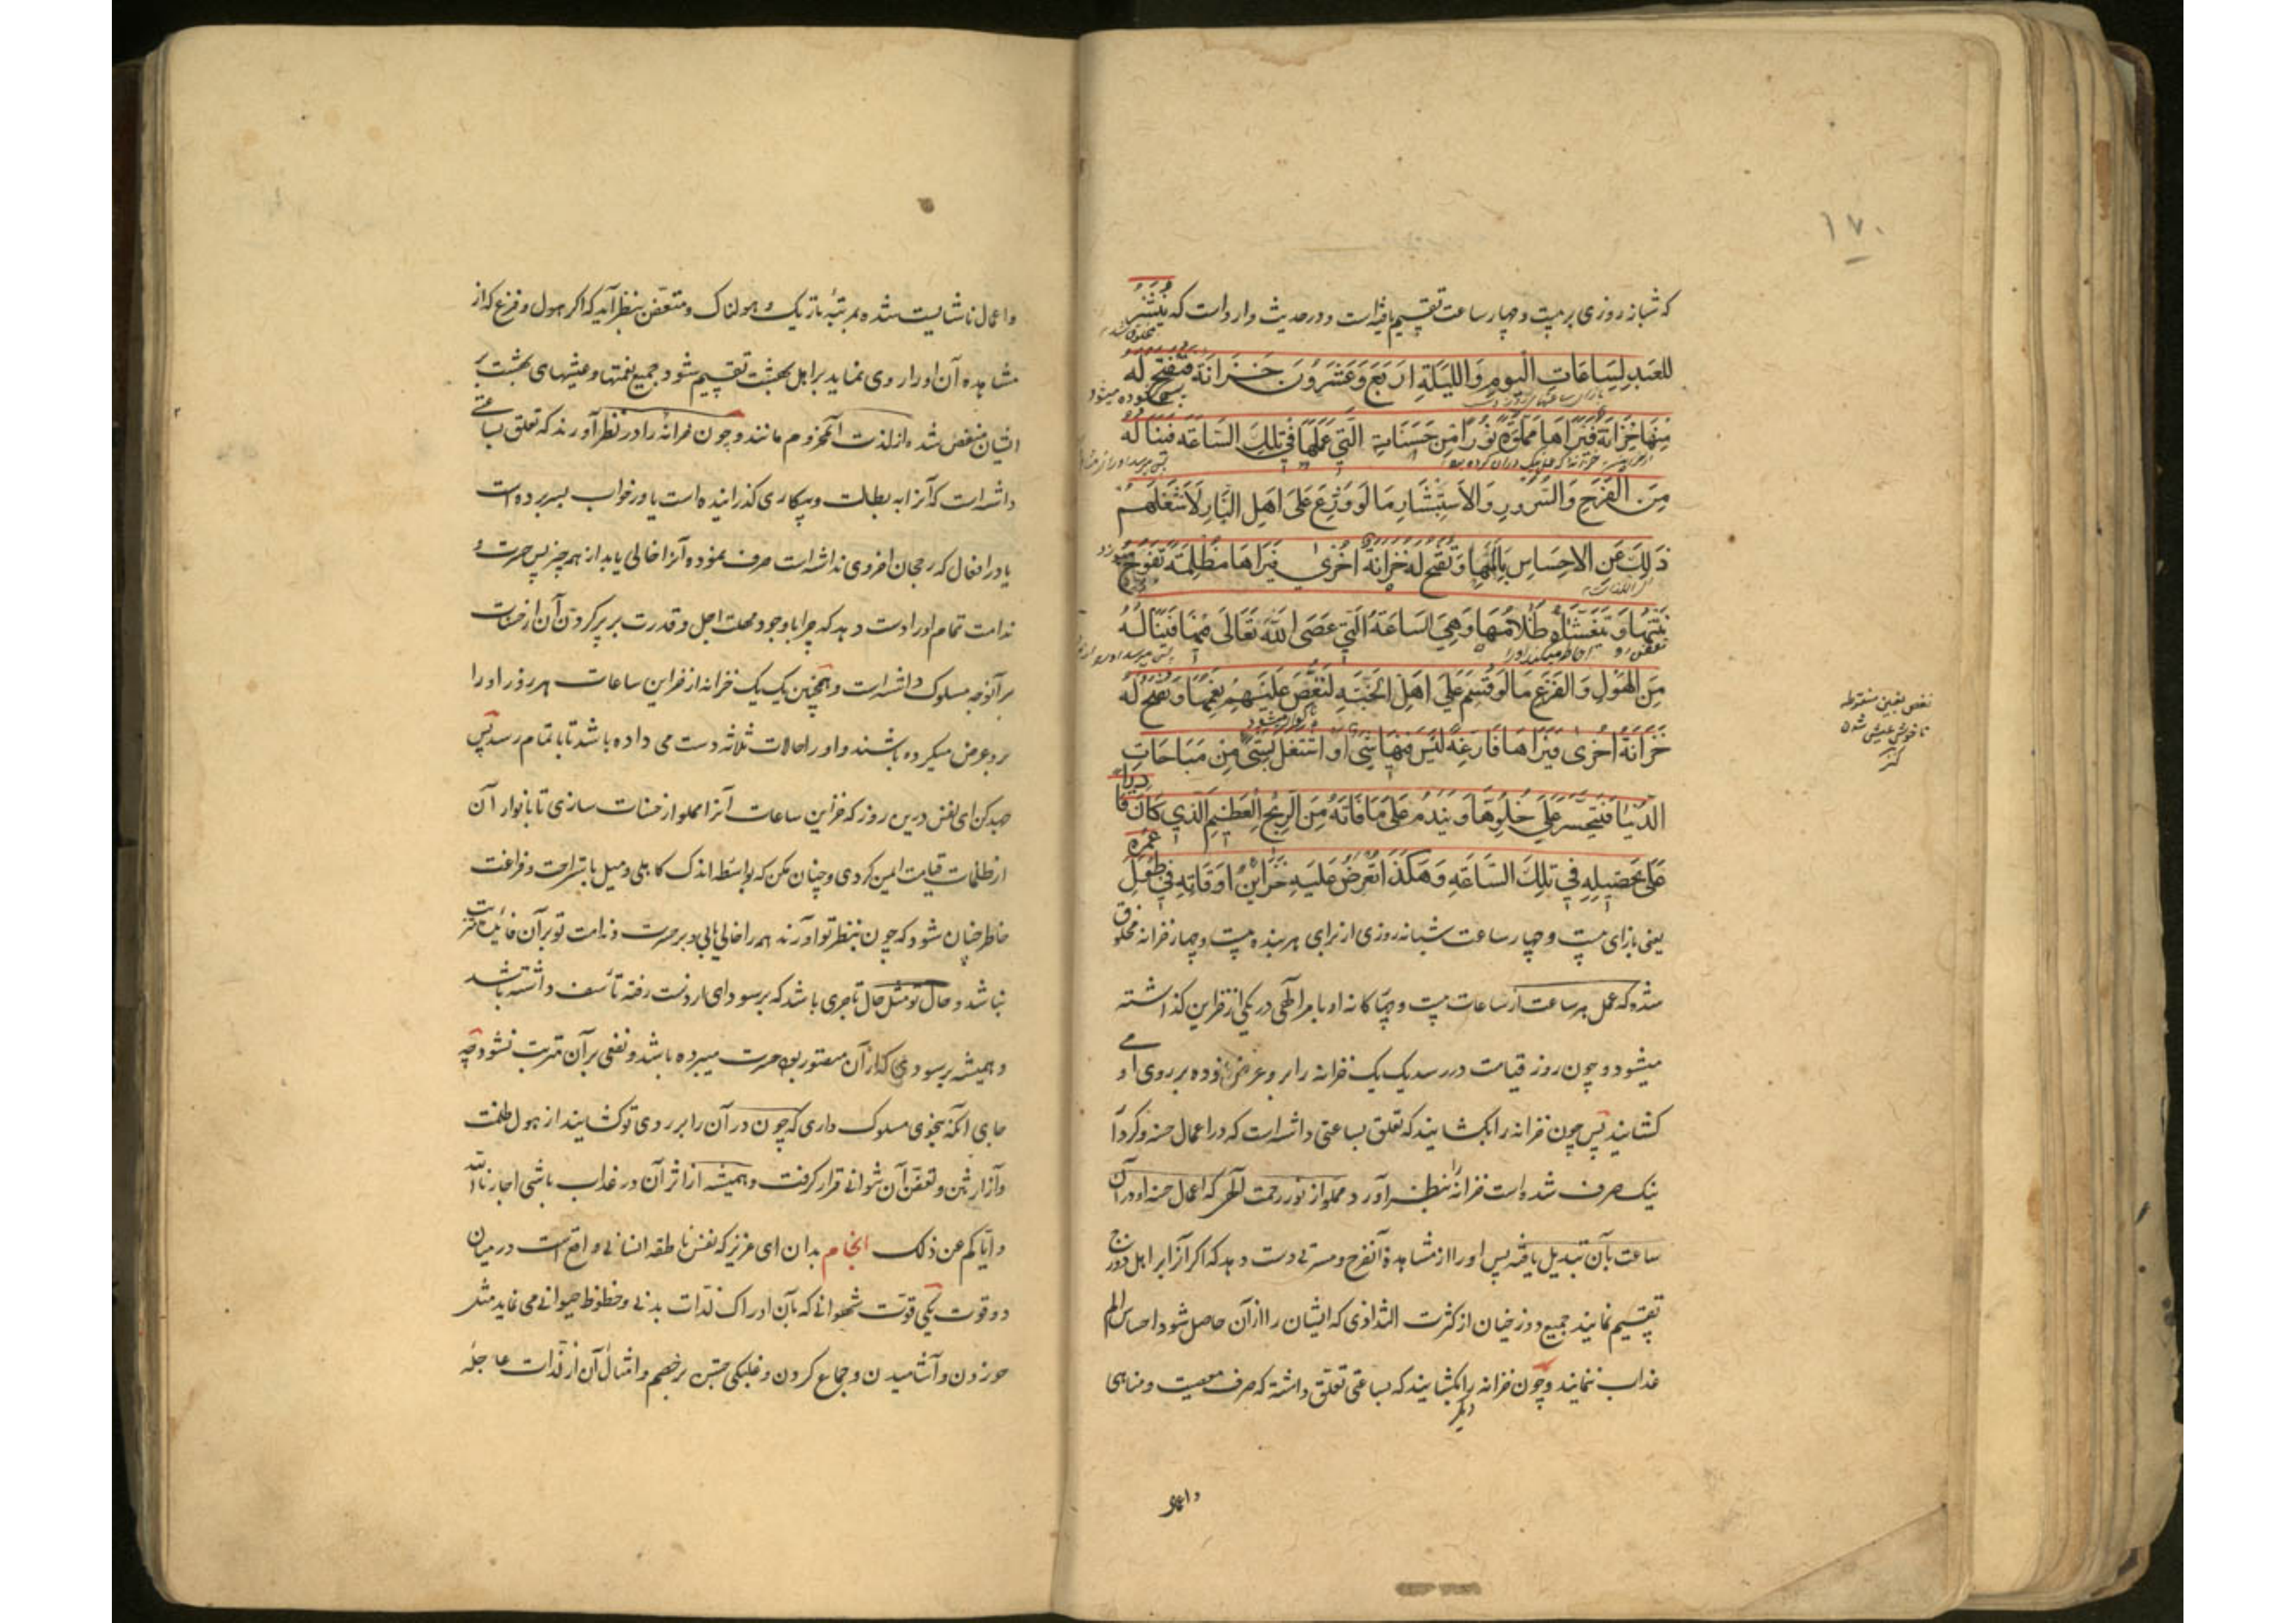 ۱۷۰
که شبانه روزی بر بیست و چهار ساعت تقسیم یافته است و در حدیث وارد است که یُنْشَرُ
للعَبدِ لِسَاعَاتِ الْیومِ وَاللیلَةِ اربَع وَعَشرُونَ خَزَانَة فَتفتح لَه
مِنهَا خِزَانَة فَیَراهَا مملوّة نورًا مِن حَسَنَاتِه الّتی عَمِلَهَا فی تِلكَ السّاعَة فینالهُ
مِنَ الفَرَحِ وَالسّرُورِ وَالاستِبْشَارِ مَا لَو وُزِّعَ عَلَی اَهلِ النّارِ لَاَشغلهم
ذلِكَ عَنِ الاحسَاسِ بِاَلَمِهَا وَتفتح لهُ خزانة اُخرٰی فیَراهَا مُظلِمَة تَفُوحُ
نَتنُهَا وَیتَغَشّاهُ ظَلامُهَا وَهِیَ السّاعَةُ الّتی عَصَی اللّٰهَ تَعَالٰی فیهَا فَیَنَالهُ
مِنَ الهَولِ وَالفَزَعِ مَا لَو قُسِمَ عَلٰی اَهلِ الجَنّةِ لَنَغّصَ عَلَیهِم نِعَمَهَا وَتفتح لهُ
خَزَانَة اُخرٰی فیَراهَا فَارِغَة لَیسَ فیهَا شَیٌ او اشتغل بِشَیٍ مِن مُبَاحَاتِ
الدّنیَا فَیتَحَسّرُ عَلٰی خُلوِّهَا وَیَندَمُ عَلٰی مَا فَاتَهُ مِنَ الرّبحِ العَظیمِ الّذی كَانَ قَا
دِرًا
عَلٰی تحصیلِهِ فی تِلكَ السّاعَةِ وَهكَذَا تُعرَضُ عَلَیهِ خَزَاینُ اَوقَاتِهِ فی طُولِ
عُمرِه
یعنی بازای بیست و چهار ساعت شبانه روزی از برای هر بنده بیست و چهار خزانه مخلوق
شده که عمل هر ساعت از ساعات بیست و چهارکانه او بامر الٰهی در یکی از خزاین گذاشته
میشود و چون روز قیامت در رسد یک یک خزانه را برو عرض نموده بر روی او می
کشایند پس چون خزانه را بکشایند که تعلق بساعتی داشته است که در اعمال حسنه و کردار
نیک صرف شده است خزانه بنظر آورد مملو از نور رحمت الٰهی که اعمال حسنه او در آن
ساعت بآن تبدیل یافته پس او را از مشاهده آن فرح و مسرتی دست دهد که اگر آنرا بر اهل دوزخ
تقسیم نمایند جمیع دوزخیان از کثرت التذاذی که ایشان را از آن حاصل شود احساس الم
عذاب ننمایند و چون خزانه دیگر را بکشایند که بساعتی تعلق داشته که صرف معصیت و مناهی
نغص بغین منقوطه
ناخوش عیش شدن
کنز
و اعمال
و اعمال ناشایست شده بمرتبهٔ تاریک و هولناک و متعفن بنظر آید که اگر هول و فزع که از
مشاهده آن او را روی نماید بر اهل بهشت تقسیم شود جمیع نعمتها و عیشهای بهشت بر
ایشان منغص شده از لذت آن محروم مانند و چون خزانه را در نظر آورند که تعلق بساعتی
داشته است که آنرا به بطالت و بیکاری گذرانیده است یا در خواب بسر برده است
یا در افعال که رجحان اخروی نداشته است صرف نموده آنرا خالی یابد از همه چیز پس حسرت و
ندامت تمام او را دست دهد که چرا با وجود مهلت اجل و قدرت بر پر کردن آن از حسنات
بر آنوجه مسلوک داشته است و همچنین یک یک خزانه از خزاین ساعات هر روز او را
برو عرض میکرده باشند و او را حالات ثلاثه دست می داده باشد تا باتمام رسد پس
جهد کن ای نفس درین روز که خزاین ساعات آنرا مملو از حسنات سازی تا بانوار آن
از ظلمات قیامت ایمن گردی و چنان مکن که بواسطه اندک کاهلی و میل باستراحت و فراغت
خاطر چنان شود که چون بنظر تو آورند همه را خالی یابی و بر حسرت و ندامت تو بر آن فائدت مترتب
نباشد و حال تو مثل حال تاجری باشد که بر سودای از دست رفته تأسف داشته باشد
و همیشه بر سودی که از آن متصور بود حسرت میبرده باشد و نفعی بر آن مترتب نشود چه
جای آنکه بنحوی مسلوک داری که چون در آن را بر روی تو کشایند از هول ظلمت
و آزار نتن و تعفن آن نتوانی قرار گرفت و همیشه از اثر آن در عذاب باشی اجارنا الله
و ایاکم عن ذلک انجام بدان ای عزیز که نفس ناطقه انسانی واقع است در میان
دو قوت یکی قوت شهوانی که بآن ادراک لذات بدنی و حظوظ حیوانی می نماید مثل
خوردن و آشامیدن و جماع کردن و غلبگی جستن بر خصم و امثال آن از لذات عاجله